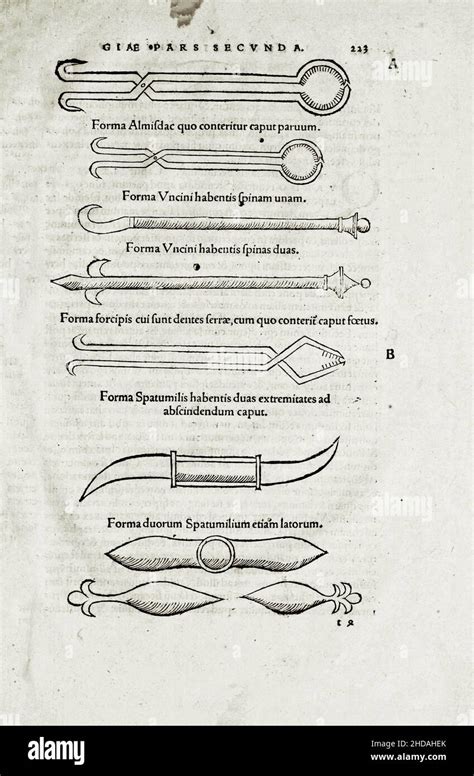 GIAE PARS SECVNDA. 223
A
Forma Almisdac quo conteritur caput paruum.
Forma Vncini habentis spinam unam.
Forma Vncini habentis spinas duas.
Forma forcipis cui sunt dentes serræ, cum quo conterit̃ caput fœtus.
B
Forma Spatumilis habentis duas extremitates ad
abscindendum caput.
Forma duorum Spatumilium etiam latorum.
alamy
Image ID: 2HDAHEK
www.alamy.com